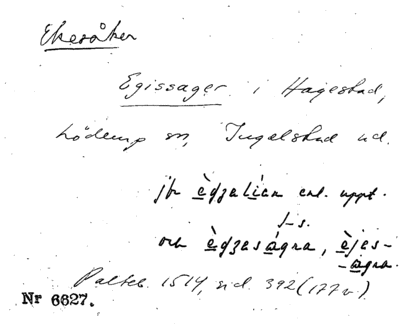 Ekesåker
Egissager i Hagestad,
Löderup sn, Ingelstad hd.
jfr ègzalían enl. uppt.
s-s.
och ègzeságna, èjes-
-agna.
Palteb. 1514, sid. 392 (177 v).
Nr 6627.